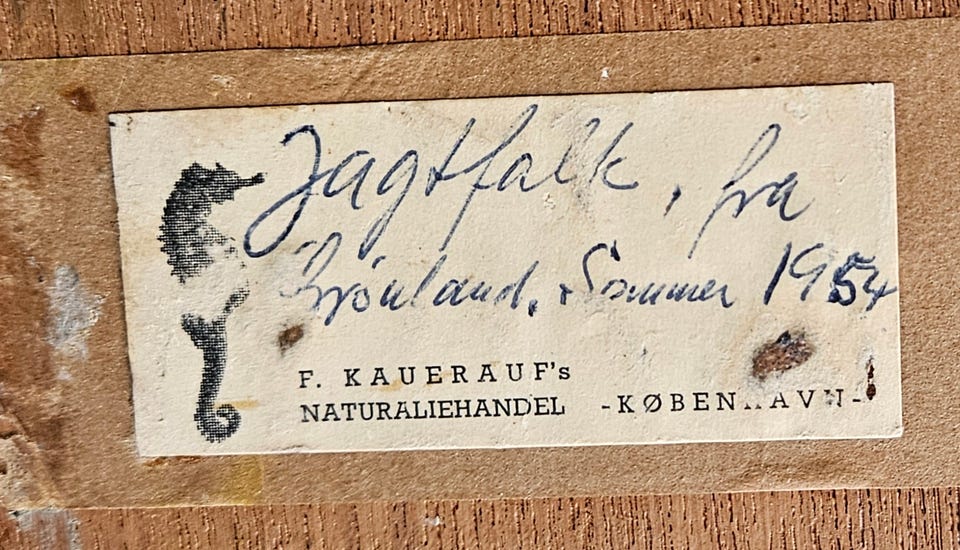 Jagtfalk, fra
Grönland, Sommer 1954
F. KAUERAUF's
NATURALIEHANDEL -KØBENHAVN-